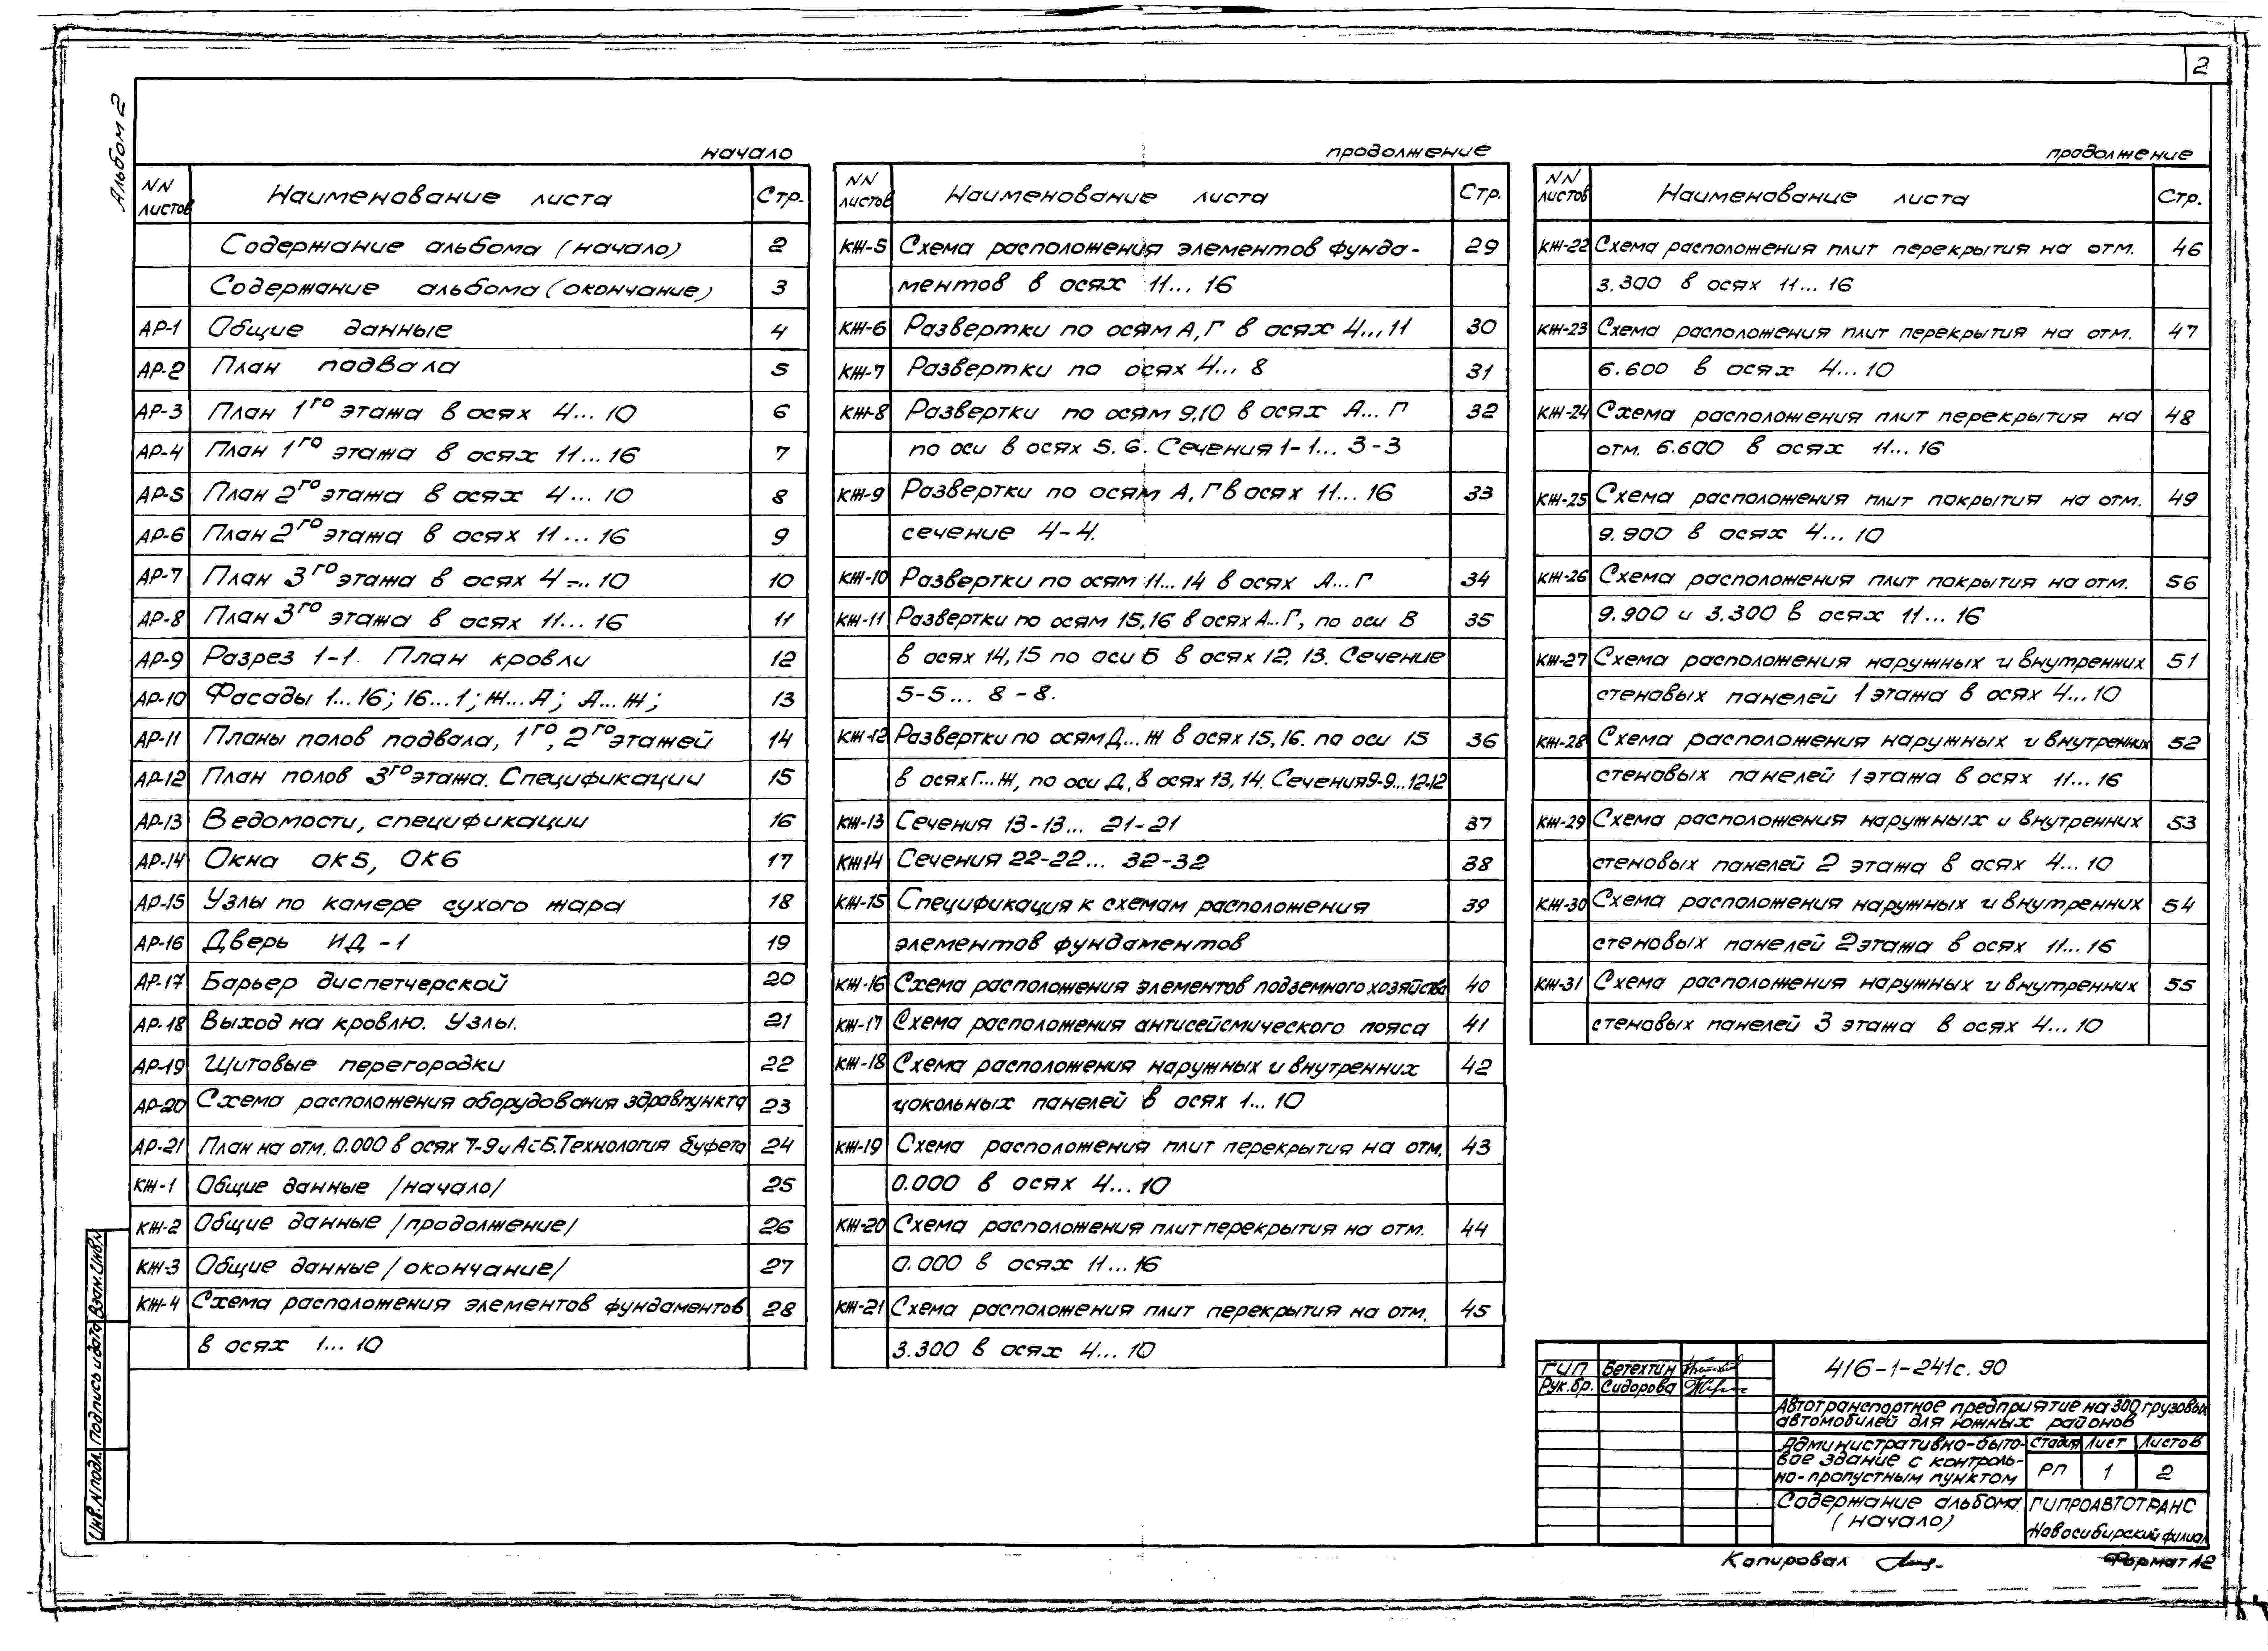 2
Альбом 2
начало
NN листов Наименование листа Стр.
Содержание альбома (начало) 2
Содержание альбома (окончание) 3
АР-1 Общие данные 4
АР-2 План подвала 5
АР-3 План 1го этажа в осях 4...10 6
АР-4 План 1го этажа в осях 11...16 7
АР-5 План 2го этажа в осях 4...10 8
АР-6 План 2го этажа в осях 11...16 9
АР-7 План 3го этажа в осях 4...10 10
АР-8 План 3го этажа в осях 11...16 11
АР-9 Разрез 1-1. План кровли 12
АР-10 Фасады 1...16; 16...1; Ж...А; А...Ж; 13
АР-11 Планы полов подвала, 1го, 2го этажей 14
АР-12 План полов 3го этажа. Спецификации 15
АР-13 Ведомости, спецификации 16
АР-14 Окна ОК5, ОК6 17
АР-15 Узлы по камере сухого жара 18
АР-16 Дверь ИД-1 19
АР-17 Барьер диспетчерской 20
АР-18 Выход на кровлю. Узлы. 21
АР-19 Щитовые перегородки 22
АР-20 Схема расположения оборудования здравпункта 23
АР-21 План на отм. 0.000 в осях 7-9 и А-Б. Технология буфета 24
КЖ-1 Общие данные /начало/ 25
КЖ-2 Общие данные /продолжение/ 26
КЖ-3 Общие данные /окончание/ 27
КЖ-4 Схема расположения элементов фундаментов 28
в осях 1...10
продолжение
NN листов Наименование листа Стр.
КЖ-5 Схема расположения элементов фунда- 29
ментов в осях 11...16
КЖ-6 Развертки по осям А, Г в осях 4...11 30
КЖ-7 Развертки по осях 4...8 31
КЖ-8 Развертки по осям 9,10 в осях А...Г 32
по оси в осях 5.6. Сечения 1-1...3-3
КЖ-9 Развертки по осям А, Г в осях 11...16 33
сечение 4-4.
КЖ-10 Развертки по осям 11...14 в осях А...Г 34
КЖ-11 Развертки по осям 15,16 в осях А...Г, по оси В 35
в осях 14,15 по оси Б в осях 12,13. Сечение
5-5...8-8.
КЖ-12 Развертки по осям Д...Ж в осях 15,16. по оси 15 36
в осях Г...Ж, по оси Д, в осях 13,14. Сечения 9-9...12-12
КЖ-13 Сечения 13-13... 21-21 37
КЖ14 Сечения 22-22... 32-32 38
КЖ-15 Спецификация к схемам расположения 39
элементов фундаментов
КЖ-16 Схема расположения элементов подземного хозяйства 40
КЖ-17 Схема расположения антисейсмического пояса 41
КЖ-18 Схема расположения наружных и внутренних 42
цокольных панелей в осях 1...10
КЖ-19 Схема расположения плит перекрытия на отм. 43
0.000 в осях 4...10
КЖ-20 Схема расположения плит перекрытия на отм. 44
0.000 в осях 11...16
КЖ-21 Схема расположения плит перекрытия на отм. 45
3.300 в осях 4...10
продолжение
NN листов Наименование листа Стр.
КЖ-22 Схема расположения плит перекрытия на отм. 46
3.300 в осях 11...16
КЖ-23 Схема расположения плит перекрытия на отм. 47
6.600 в осях 4...10
КЖ-24 Схема расположения плит перекрытия на 48
отм. 6.600 в осях 11...16
КЖ-25 Схема расположения плит покрытия на отм. 49
9.900 в осях 4...10
КЖ-26 Схема расположения плит покрытия на отм. 56
9.900 и 3.300 в осях 11...16
КЖ-27 Схема расположения наружных и внутренних 51
стеновых панелей 1 этажа в осях 4...10
КЖ-28 Схема расположения наружных и внутренних 52
стеновых панелей 1 этажа в осях 11...16
КЖ-29 Схема расположения наружных и внутренних 53
стеновых панелей 2 этажа в осях 4...10
КЖ-30 Схема расположения наружных и внутренних 54
стеновых панелей 2 этажа в осях 11...16
КЖ-31 Схема расположения наружных и внутренних 55
стеновых панелей 3 этажа в осях 4...10
Инв. N подл. Подпись и дата Взам. инв. N
ГИП Бетехтин
Рук. бр. Сидорова
416-1-241с.90
Автотранспортное предприятие на 300 грузовых
автомобилей для южных районов
Административно-быто-
вое здание с контроль-
но-пропускным пунктом
Стадия Лист Листов
РП 1 2
Содержание альбома
(начало)
ГИПРОАВТОТРАНС
Новосибирский филиал
Копировал
Формат А2